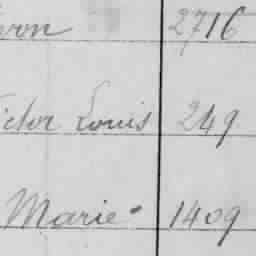 2716
Victor Louis 249
Marie 1409